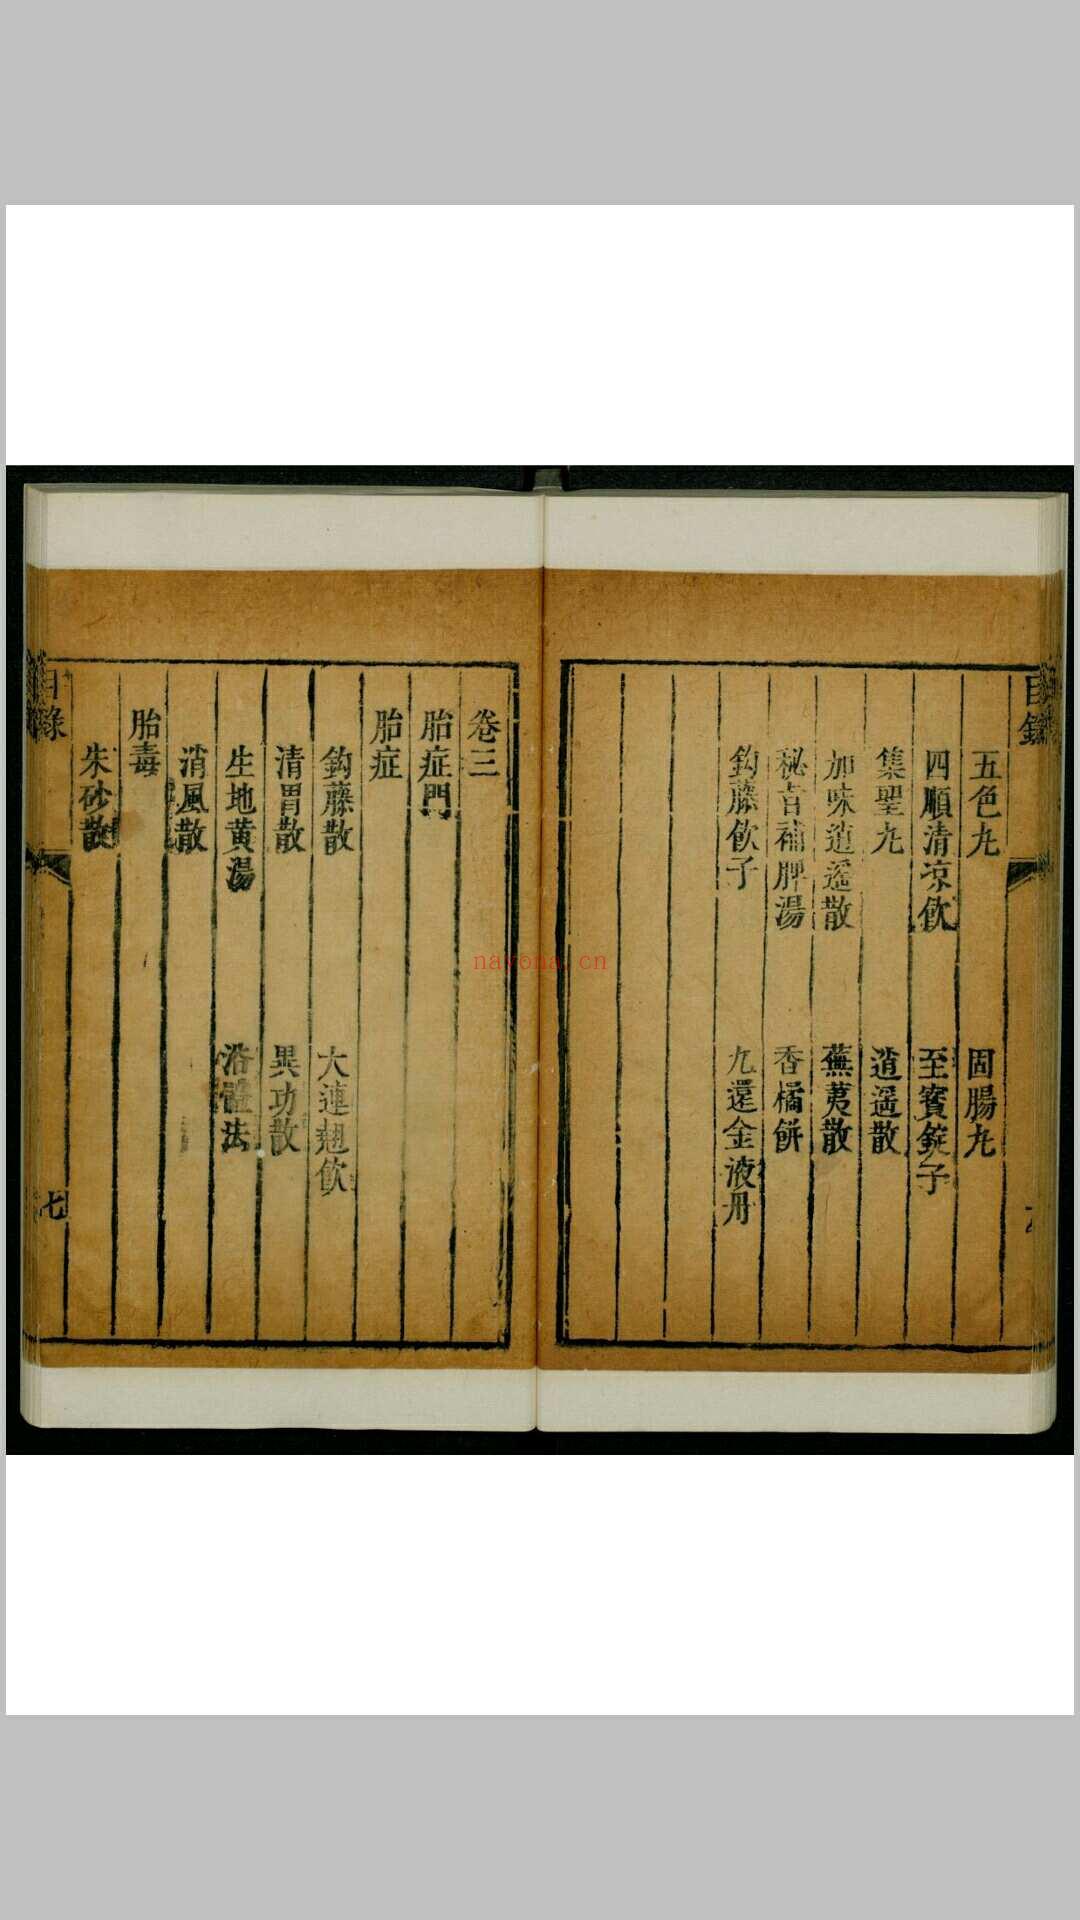 目錄
五色丸 固腸丸
四順清凉飲 至寳錠子
集聖丸 逍遥散
加味逍遥散 蕪荑散
秘旨補脾湯 香橘餅
鈎藤飲子 九還金液丹
卷三
胎症門
胎症
鈎藤散 大連翹飲
清胃散 異功散
生地黄湯 浴體法
消風散
胎毒
朱砂散
目錄
七
nayona.cn